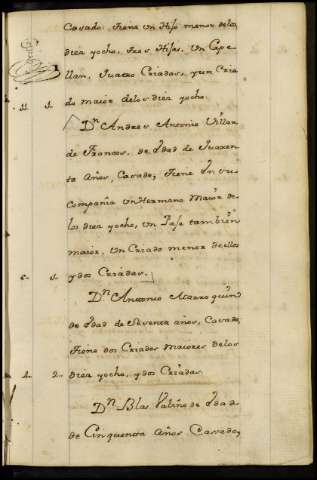 Casado, tiene un Hijo menor delos
diez yocho, tres Hijas, Un Cape
llan, Quatro Criadas, y un Cria
do maior delos diez yocho.
11. 1.
Dn. Andres Antonio Villar
de Frances, de Edad de Quaren
ta Años, Casado, tiene En su
Compañia un Hermano Maior de
los diez yocho, Un Paje tambien
maior, Un Criado menor de ellos
y dos Criadas.
1.
Dn. Antonio
de Edad de Setenta años, Casado,
tiene dos Criados maiores delos
diez yocho, y dos Criadas.
2.
Dn. Blas Valiño de Edad
de Cinquenta Años Casado,